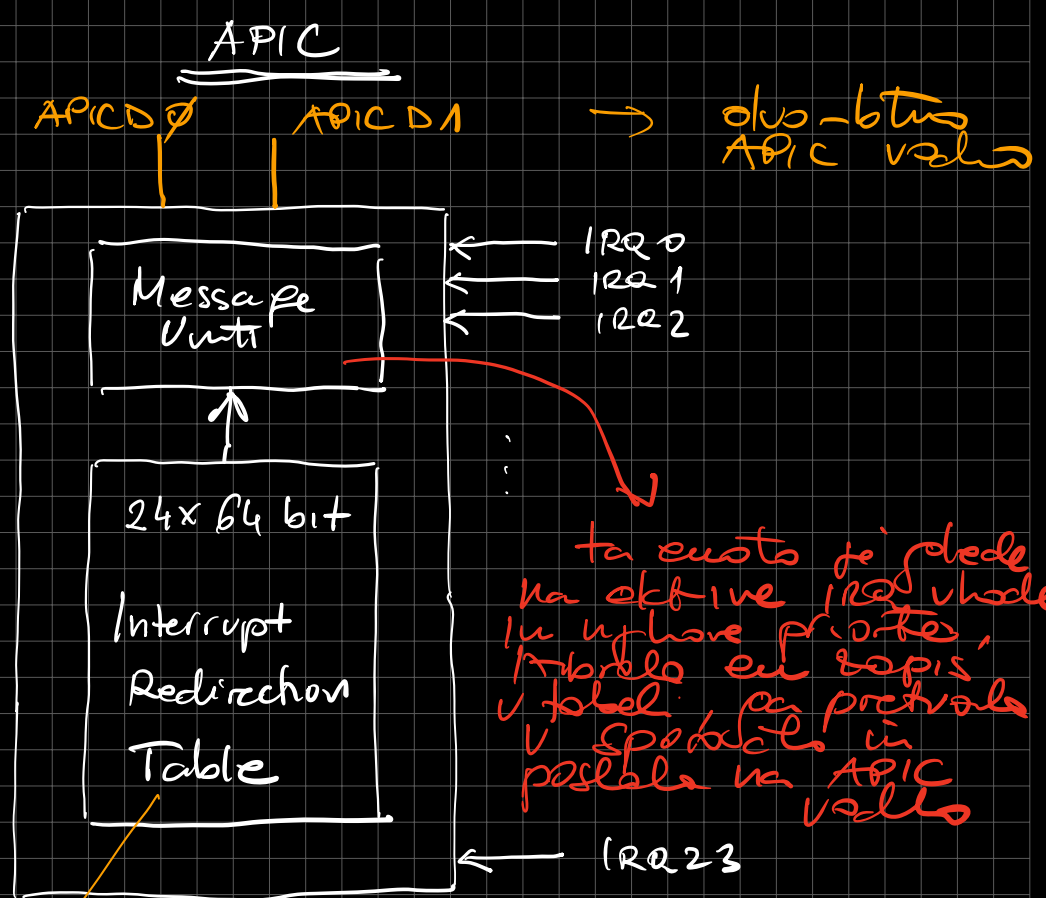 APIC
APICD0 APICD1 → dvo-bitno
APIC vodilo
IRQ 0
IRQ 1
IRQ 2
Message
Unit
24x64 bit
Interrupt
Redirection
Table
ta enota je glede
na aktivne IRQ vhode
in njihove prioritete,
izbrala en zapis
v tabeli, ga pretvorila
v sporočilo in
poslala na APIC
vodilo
IRQ23